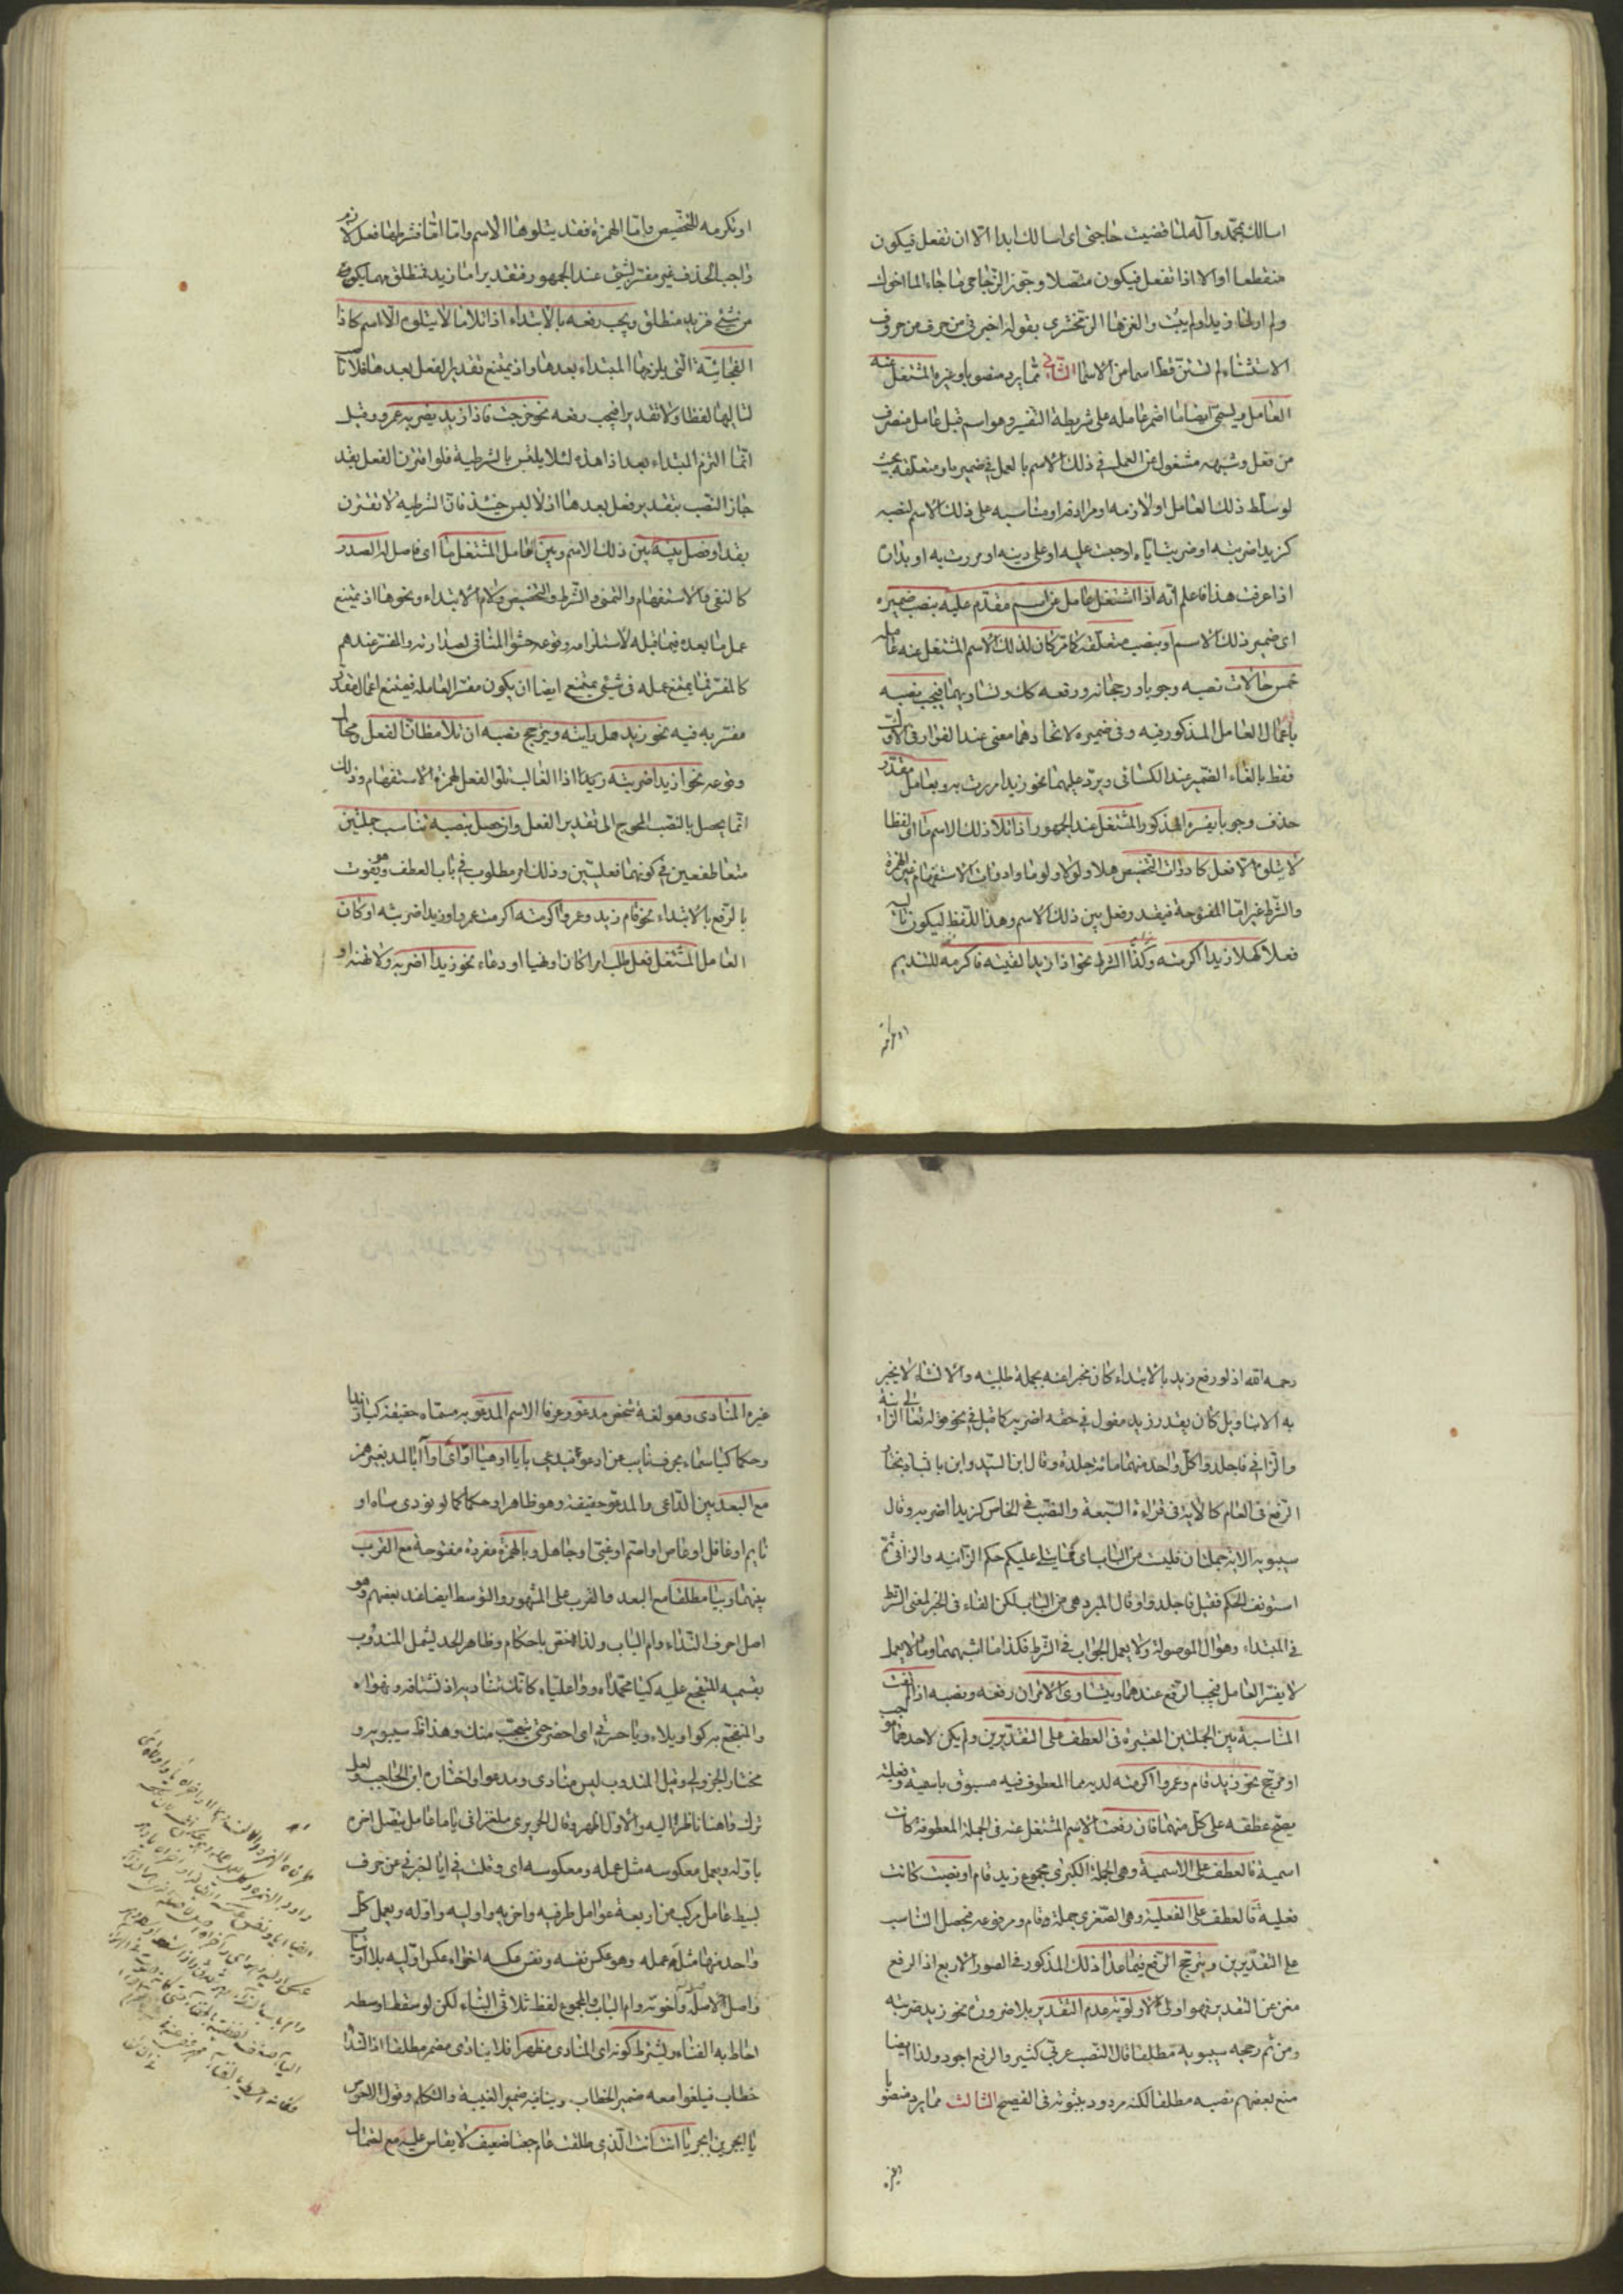 اسالك بمحمد وآله لما قضيت حاجتى اى اسالك ابدا الا ان تفعل فيكون
منقطعا او الا اذا تفعل فيكون متصلا وجوز الزجاجى ما جاء لما اخوك
ولم ار لما زيدا ولم يثبت والغرتها الزمخشرى بقوله اخبرنى من حرف من حروف
الاستثناء لم تستثن قط اسما من الاسماء الثانى مما يرد منصوبا وغيره المشتغل عنه
العامل ويسمى ايضا ما اضمر عامله على شريطة التفسير وهو اسم قبل عامل متصرف
من فعل وشبهه مشغول عن العمل فى ذلك الاسم بالعمل فى ضميره او متعلقه بحيث
لو سلط ذلك العامل او لازمه او مرادفه او مناسبه على ذلك الاسم لنصبه
كزيدا ضربته او ضربت اياه او حبست عليه او على دينه او مررت به او بذاك
اذا عرفت هذا فاعلم انه اذا اشتغل عامل عن اسم مقدم عليه بنصب ضميره
اى ضمير ذلك الاسم او بنصب متعلقه كما مر كان لذلك الاسم المشتغل عنه عامله
خمس حالات نصبه وجوبا ورجحانه ورفعه كك وتساويهما فيجب نصبه
باعمال العامل المذكور فيه وفى ضميره لاتحادهما معنى عند الفراء وفى الاول
فقط بالغاء الضمير عند الكسائى ويرد عليهما نحو زيدا مررت به وبعامل مقدر
حذف وجوبا يفسره المذكور المشتغل عند الجمهور اذا تلا ذلك الاسم ما اى لفظا
لا يتلوه الا فعل كادوات التحضيض هلا ولولا ولوما وادوات الاستفهام غير الهمزة
والشرط غير اما المفتوحة فيقدر فعل بين ذلك الاسم وهذا اللفظ ليكون تاليه
فعلا كهلا زيدا اكرمته وكذا الشرط نحو اذا زيدا لقيته فاكرمه للتنديم
او تكرمه للتحضيض واما الهمزة فقد يتلوها الاسم واما اما فشرطها فعل لازم
واجب الحذف غير مفسر لشئ عند الجمهور فتقدير اما زيد فمنطلق مهما يكون
من شئ فزيد منطلق ويجب رفعه بالابتداء اذا تلا ما لا يتلوه الا اسم كاذا
الفجائية التى يلزمها المبتداء بعدها واذ يمتنع تقدير الفعل بعدها فلا
لتاليها لفظا ولا تقديرا فيجب رفعه نحو خرجت فاذا زيد يضربه عمرو وقيل
انما التزم المبتداء بعد اذا هذه لئلا يلتبس بالشرطية فلو اقترن الفعل بقد
جاز النصب بتقدير فعل بعدها اذ لا لبس حينئذ فان الشرطية لا تقترن
بقد او فصل بينه بين ذلك الاسم وبين العامل المشتغل ما اى فاصل له الصدر
كالنفى والاستفهام والتمنى والشرط والتحضيض ولام الابتداء ونحوها اذ يمتنع
عمل ما بعده فيما قبله لاستلزامه وقوعه حشوا المنافى لصدارته والمفسر عندهم
كالمفسر فما يمتنع عمله فى شئ يمتنع ايضا ان يكون مفسرا لعامله فيمتنع اعمال مقدر
مفسر به فيه نحو زيد هل رايته ويترجح نصبه ان تلا مظان الفعل ومحال
وقوعه نحو ازيدا ضربته زيدا اذ الغالب تلو الفعل لهمزة الاستفهام وذلك
انما يحصل بالنصب المحوج الى تقدير الفعل وان حصل بنصبه تناسب جملتين
متعاطفتين فى كونهما فعليتين وذلك امر مطلوب فى باب العطف وهو يفوت
بالرفع بالابتداء نحو قام زيد وعمروا اكرمته اكرمت عمروا وزيدا ضربته او كان
العامل المشتغل فعل طلب امرا كان او نهيا او دعاء نحو زيدا اضربه ولا تهنه او
رحمه الله اذ لو رفع زيد بالابتداء كان مخبرا عنه بجملة طلبيه والانشاء لا يخبر
به الا بتاويل كان يقدر زيد مقول فى حقه اضربه كما قيل فى نحو قوله تعالى الزانية
والزانى فاجلدوا كل واحد منهما مائة جلدة وقال ابن السيد وابن بابشاد يختار
الرفع فى العام كالاية فى قراءة السبعة والنصب فى الخاص كزيدا اضربه وقال
سيبويه الاية جملتان فليست من الباب اى مما يتلى عليكم حكم الزانيه والزانى ثم
استونف الحكم فقيل فاجلدوا وقال المبرد هى من الباب لكن الفاء فى الخبر لمعنى الشرط
فى المبتداء وهو ال الموصولة ولا يعمل الجواب فى الشرط فكذا ما اشبههما وما لا يعمل
لا يفسر العامل فيجب الرفع عندهما ويتساوى الامران رفعه ونصبه اذا لم تفت
المناسبة بين الجملتين المعتبرة فى العطف على التقديرين ولم يكن لاحدهما موجب
او مرجح نحو زيد قام وعمروا اكرمته لديه مما المعطوف فيه مسبوق باسمية وفعلية
يصح عطفه على كل منهما فان رفعت الاسم المشتغل عنه فى الجملة المعطوفة كانت
اسمية فالعطف على الاسمية وهى الجملة الكبرى مجموع زيد قام او نصبت كانت
فعلية فالعطف على الفعلية وهى الصغرى جملة قام ومرفوعه فيحصل التناسب
على التقديرين ويترجح الرفع فيما عدا ذلك المذكور فى الصور الاربع اذ الرفع
مغن عن التقدير فهو اولى لاولوية عدم التقدير بلا ضرورة نحو زيد ضربته
ومن ثم رجحه سيبويه مطلقا قال النصب عربى كثير والرفع اجود ولذا ايضا
منع بعضهم نصبه مطلقا لكنه مردود بثبوته فى الفصيح الثالث مما يرد منصوبا
غيره المنادى وهو لغة شخص مدعو وعرفا الاسم المدعو به مسماه حقيقة كيا زيد
وحكما كيا سماء بحرف نايب عن ادعو فيدعى بايا او هيا او اى او آ بالمد بغير همز
مع البعد بين الداعى والمدعو حقيقة وهو ظاهر او حكما كما لو نودى ساه او
نايم او غافل او عاص او اصم او غبى او جاهل وبالهمزة مفردة مفتوحة مع القرب
بينهما وبيا مطلقا مع البعد والقرب على المشهور والتوسط ايضا عند بعضهم وهو
اصل احرف النداء وام الباب ولذا اختص باحكام وظاهر الحد يشمل المندوب
بقسميه المتفجع عليه كيا محمداه ووا علياه كانك تناديه اذ تشتاقه وتهواه
والمتفجع به كوا ويلاه ويا حسرتى اى احضر حتى يتعجب منك وهذا ظ سيبويه و
مختار الجزولى وقيل المندوب ليس منادى ومدعوا واختاره ابن الحاجب ولعل
ترك وا هنا ناظر اليه والاول اظهر وقال الحريرى ملغزا فى يا ما عامل يتصل اخره
باوله ويعمل معكوسه مثل عمله ومعكوسه اى وقلت فى ايا اخبرنى عن حرف
بسيط عامل مركب من اربعة عوامل طرفيه واخريه واوليه واوله ويعمل كل
واحد منها مثل عمله وهو عكس نفسه ونفس عكسه اخراه عكس اوليه بلا ارتياب
واصل لاصله وآخوته وام الباب والمجموع لفظ ثلاثى البناء لكن لو سقط اوسطه
احاط به الفناء ويشترط كونه اى المنادى مظهرا فلا ينادى مضمر مطلقا اذ النداء
خطاب فيلغوا معه ضمير الخطاب وينافيه ضمير الغيبة والتكلم وقول الاحوص
يا ابجر بن ابجر يا انتا انت الذى طلقت عام جعتا ضعيف لا يقاس عليه مع لغات